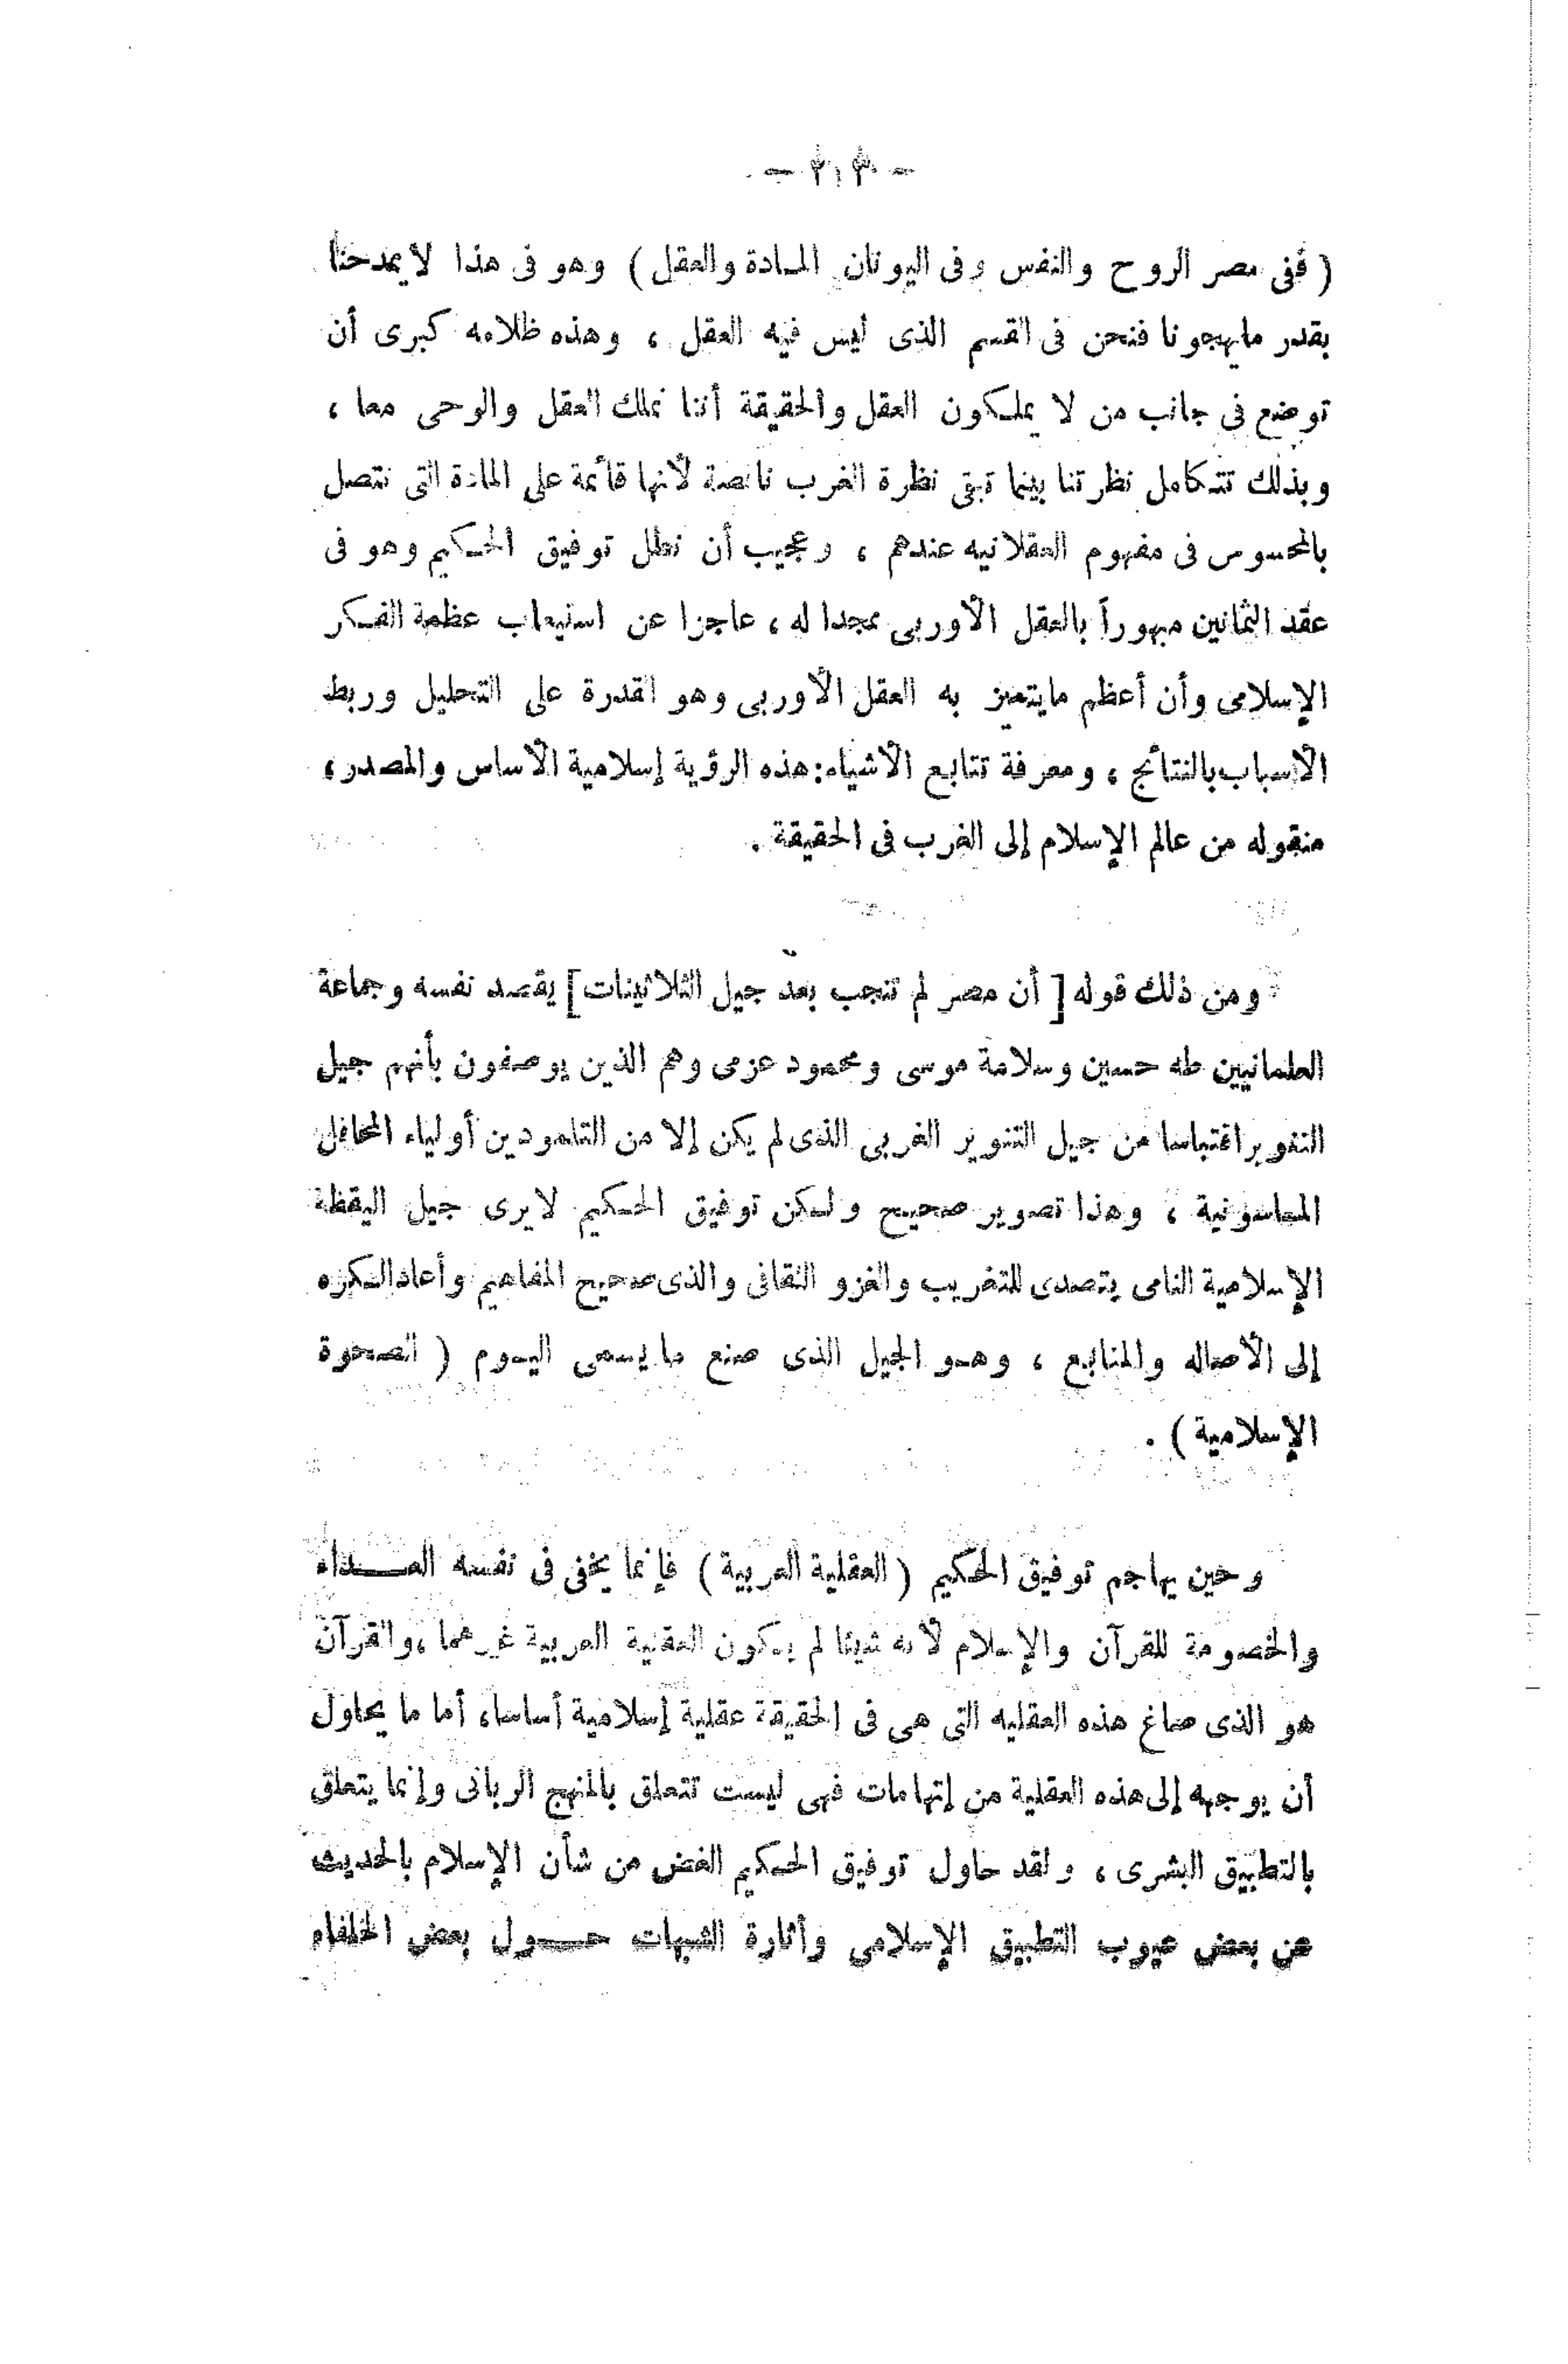 ( ففى مصر الروح والنفس وفى اليونان المادة والعقل ) وهو فى هذا لايمدحنا
بقدر مايهجونا فنحن فى القسم الذى ليس فيه العقل ، وهذه ظلامه كبرى أن
توضع فى جانب من لا يملكون العقل والحقيقة أننا نملك العقل والوحى معا ،
وبذلك تتكامل نظرتنا بينما تبقى نظرة الغرب ناقصة لأنها قائمة على المادة التى تتصل
بالمحسوس فى مفهوم العقلانيه عندهم ، وعجيب أن نطل توفيق الحكيم وهو فى
عقد الثمانين مبهوراً بالعقل الأوربى ممجدا له ، عاجزا عن استيعاب عظمة الفكر
الإسلامى وأن أعظم مايتميز به العقل الأوربى وهو القدرة على التحليل وربط
الأسباب بالنتائج ، ومعرفة تتابع الأشياء : هذه الرؤية إسلامية الأساس والمصدر ،
منقوله من عالم الإسلام إلى الغرب فى الحقيقة .
ومن ذلك قوله [ أن مصر لم تنجب بعد جيل الثلاثينات ] يقصد نفسه وجماعة
العلمانيين طه حسين وسلامة موسى ومحمود عزمى وهم الذين يوصفون بأنهم جيل
التنوير اقتباسا من جيل التنوير الغربى الذى لم يكن إلا من التلمودين أولياء المحافل
الماسونية ، وهذا تصوير صحيح ولكن توفيق الحكيم لايرى جيل اليقظة
الإسلامية النامى يتصدى للتغريب والغزو الثقافى والذى صحيح المفاهيم وأعاد الكره
إلى الأصاله والمنابع ، وهو الجيل الذى صنع ما يسمى اليوم ( الصحوة
الإسلامية ) .
وحين يهاجم توفيق الحكيم ( العقلية العربية ) فإنما يخفى فى نفسه العداء
والخصومة للقرآن والإسلام لأنه شيئا لم يكون العقلية العربية غيرهما ، والقرآن
هو الذى صاغ هذه العقليه التى هى فى الحقيقة عقلية إسلامية أساسا ، أما ما يحاول
أن يوجهه إلى هذه العقلية من إتهامات فهى ليست تتعلق بالمنهج الربانى وإنما يتعلق
بالتطبيق البشرى ، ولقد حاول توفيق الحكيم الغض من شأن الإسلام بالحديث
عن بعض عيوب التطبيق الإسلامى وأثارة الشبهات حول بعض الخلفاء